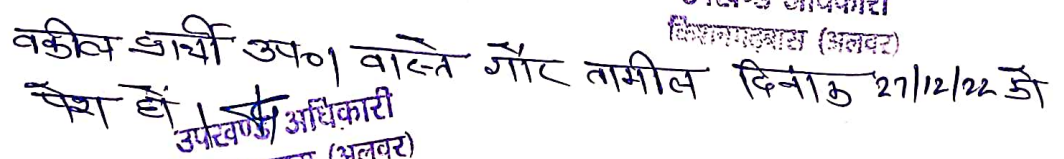 उपखण्ड अधिकारी
किशनगढ़बास (अलवर)
वकील प्रार्थी उप०। वास्ते गौर तामील दिनांक 27/12/22 को
पेश हों।
उपखण्ड अधिकारी
(अलवर)